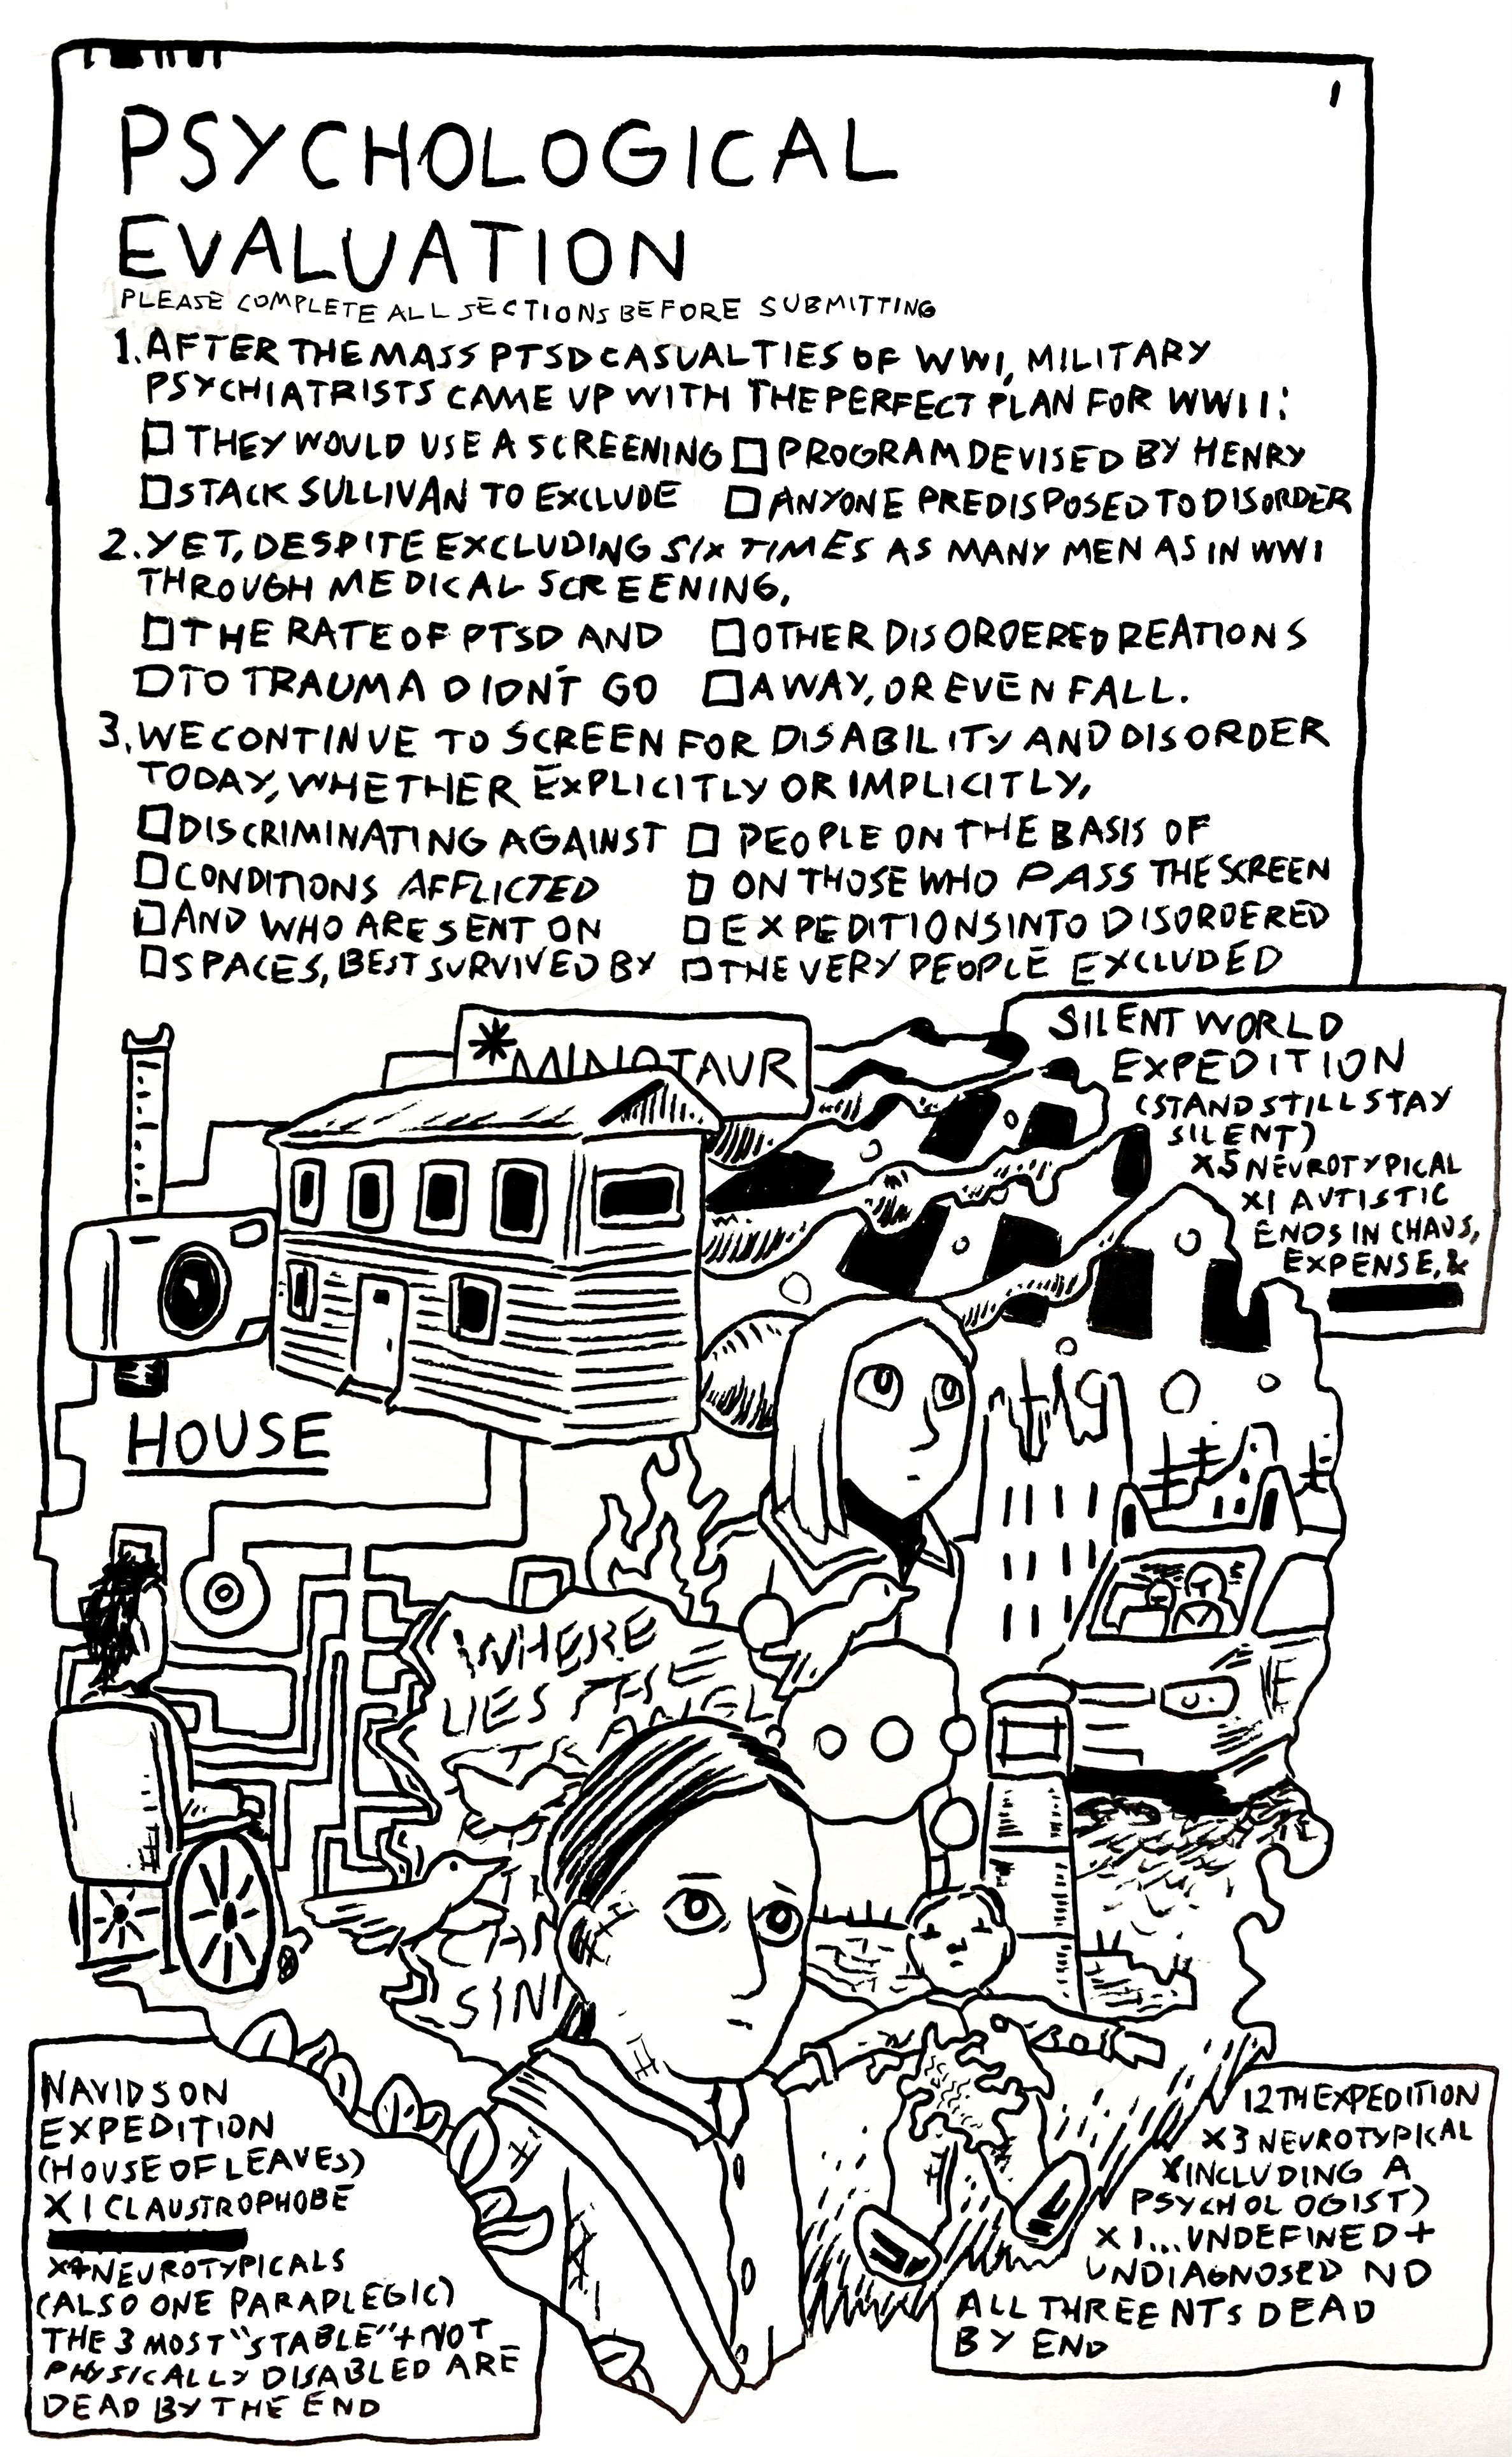 PSYCHOLOGICAL
EVALUATION
PLEASE COMPLETE ALL SECTIONS BEFORE SUBMITTING
1. AFTER THE MASS PTSD CASUALTIES OF WWI, MILITARY
PSYCHIATRISTS CAME UP WITH THE PERFECT PLAN FOR WWII:
☐ THEY WOULD USE A SCREENING ☐ PROGRAM DEVISED BY HENRY
☐ STACK SULLIVAN TO EXCLUDE ☐ ANYONE PREDISPOSED TO DISORDER
2. YET, DESPITE EXCLUDING SIX TIMES AS MANY MEN AS IN WWI
THROUGH MEDICAL SCREENING,
☐ THE RATE OF PTSD AND ☐ OTHER DISORDERED REATIONS
☐ TO TRAUMA DIDN'T GO ☐ AWAY, OR EVEN FALL.
3. WE CONTINUE TO SCREEN FOR DISABILITY AND DISORDER
TODAY, WHETHER EXPLICITLY OR IMPLICITLY,
☐ DISCRIMINATING AGAINST ☐ PEOPLE ON THE BASIS OF
☐ CONDITIONS AFFLICTED ☐ ON THOSE WHO PASS THE SCREEN
☐ AND WHO ARE SENT ON ☐ EXPEDITIONS INTO DISORDERED
☐ SPACES, BEST SURVIVED BY ☐ THE VERY PEOPLE EXCLUDED
*MINOTAUR
SILENT WORLD
EXPEDITION
(STAND STILL STAY
SILENT)
X5 NEUROTYPICAL
X1 AUTISTIC
ENDS IN CHAOS,
EXPENSE, &
HOUSE
WHERE
LIES THE
STRANGL
SIN
NAVIDSON
EXPEDITION
(HOUSE OF LEAVES)
X1 CLAUSTROPHOBE
X4 NEUROTYPICALS
(ALSO ONE PARAPLEGIC)
THE 3 MOST "STABLE" + NOT
PHYSICALLY DISABLED ARE
DEAD BY THE END
12TH EXPEDITION
X3 NEUROTYPICAL
X INCLUDING A
PSYCHOLOGIST)
X1...UNDEFINED +
UNDIAGNOSED ND
ALL THREE NTs DEAD
BY END